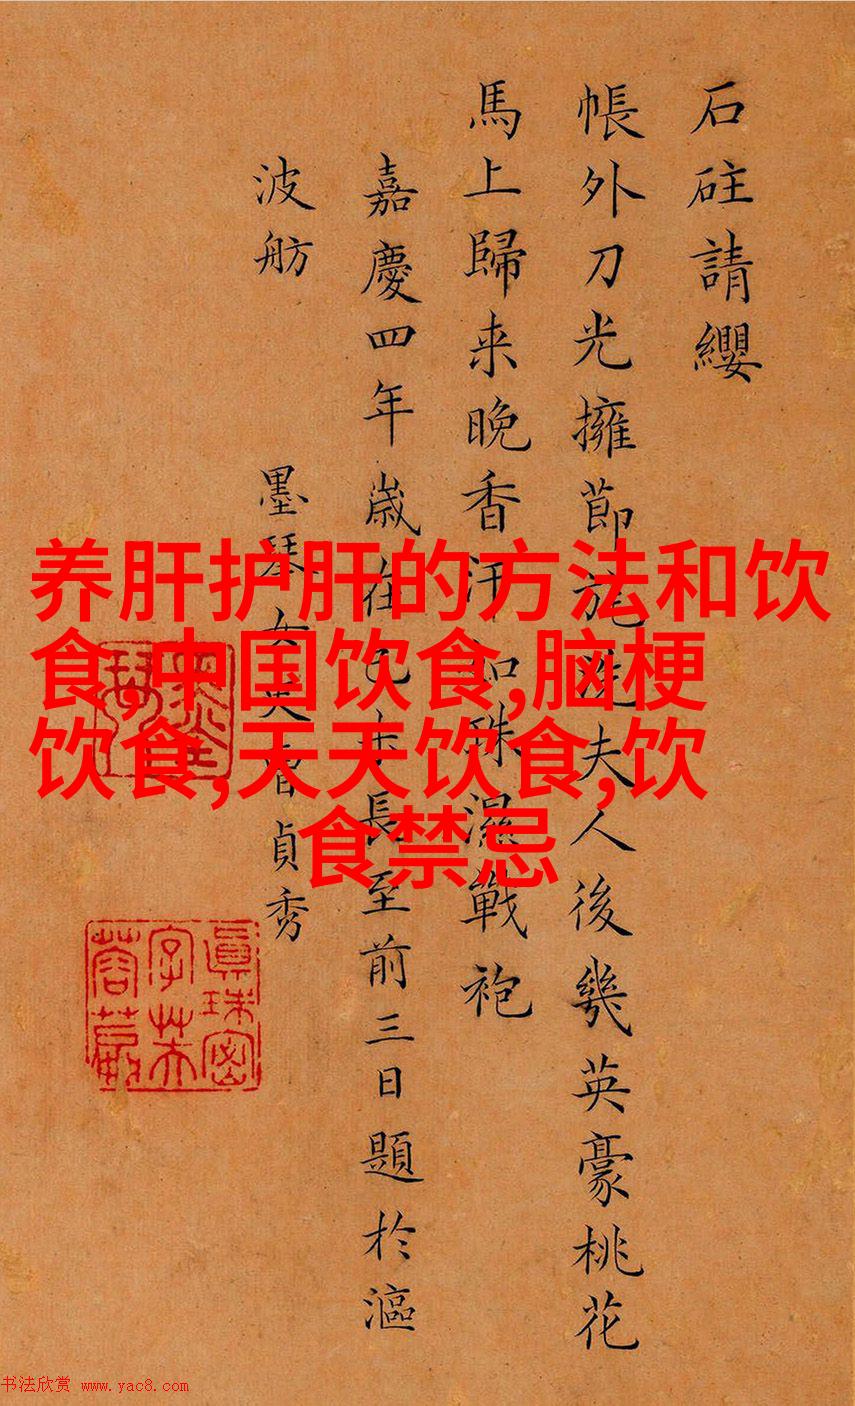 石砫請纓
帳外刀光擁節旄洗夫人後幾英豪桃花
馬上歸来晚香汗如珠濕戰袍
嘉慶四年歲在己未長至前三日題於漚
波舫
墨琴女史曹貞秀
养肝护肝的方法和饮
食,中国饮食,脑梗
饮食,天天饮食,饮
食禁忌
書法欣赏 www.yac8.com